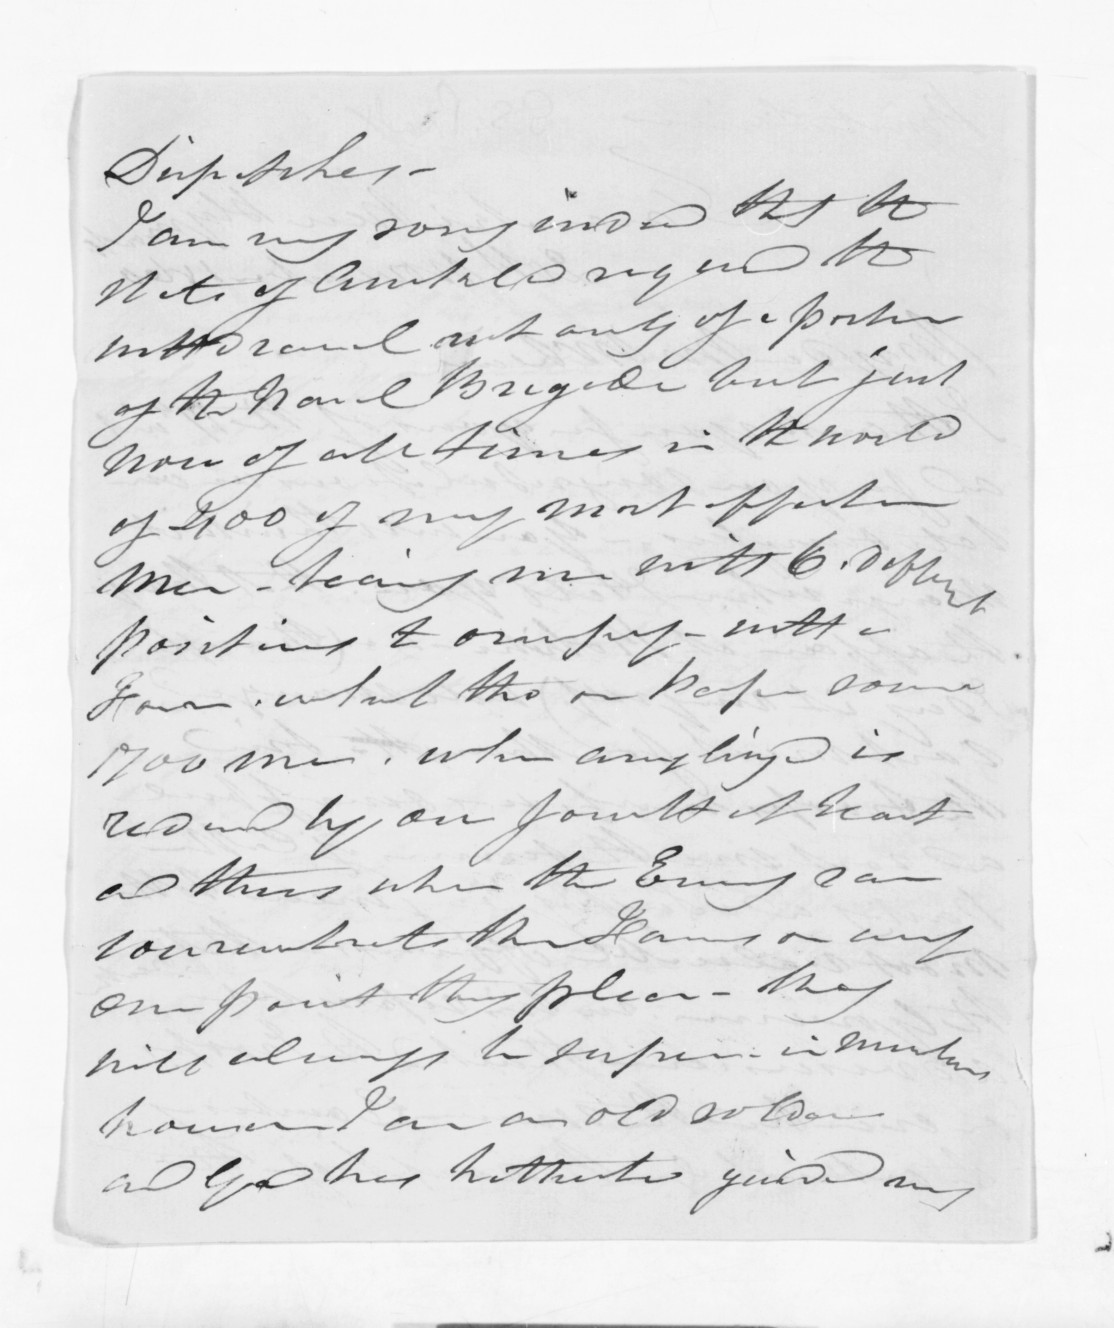 Dispatches -
I am very sorry indeed that the
State of Auckland required the
withdrawal not only of a portion
of the Naval Brigade but just
now of all times in the world
of 400 of my most effective
Men - leaving me with 6. different
positions to occupy - with a
Force. what tho on paper some
1700 men. when analized is
reduced by one fourth at least
and thus when the Enemy can
concentrate their Forces on any
one point they please - they
will always be super. in numbers
however I am an old soldier
and God has hitherto guided my